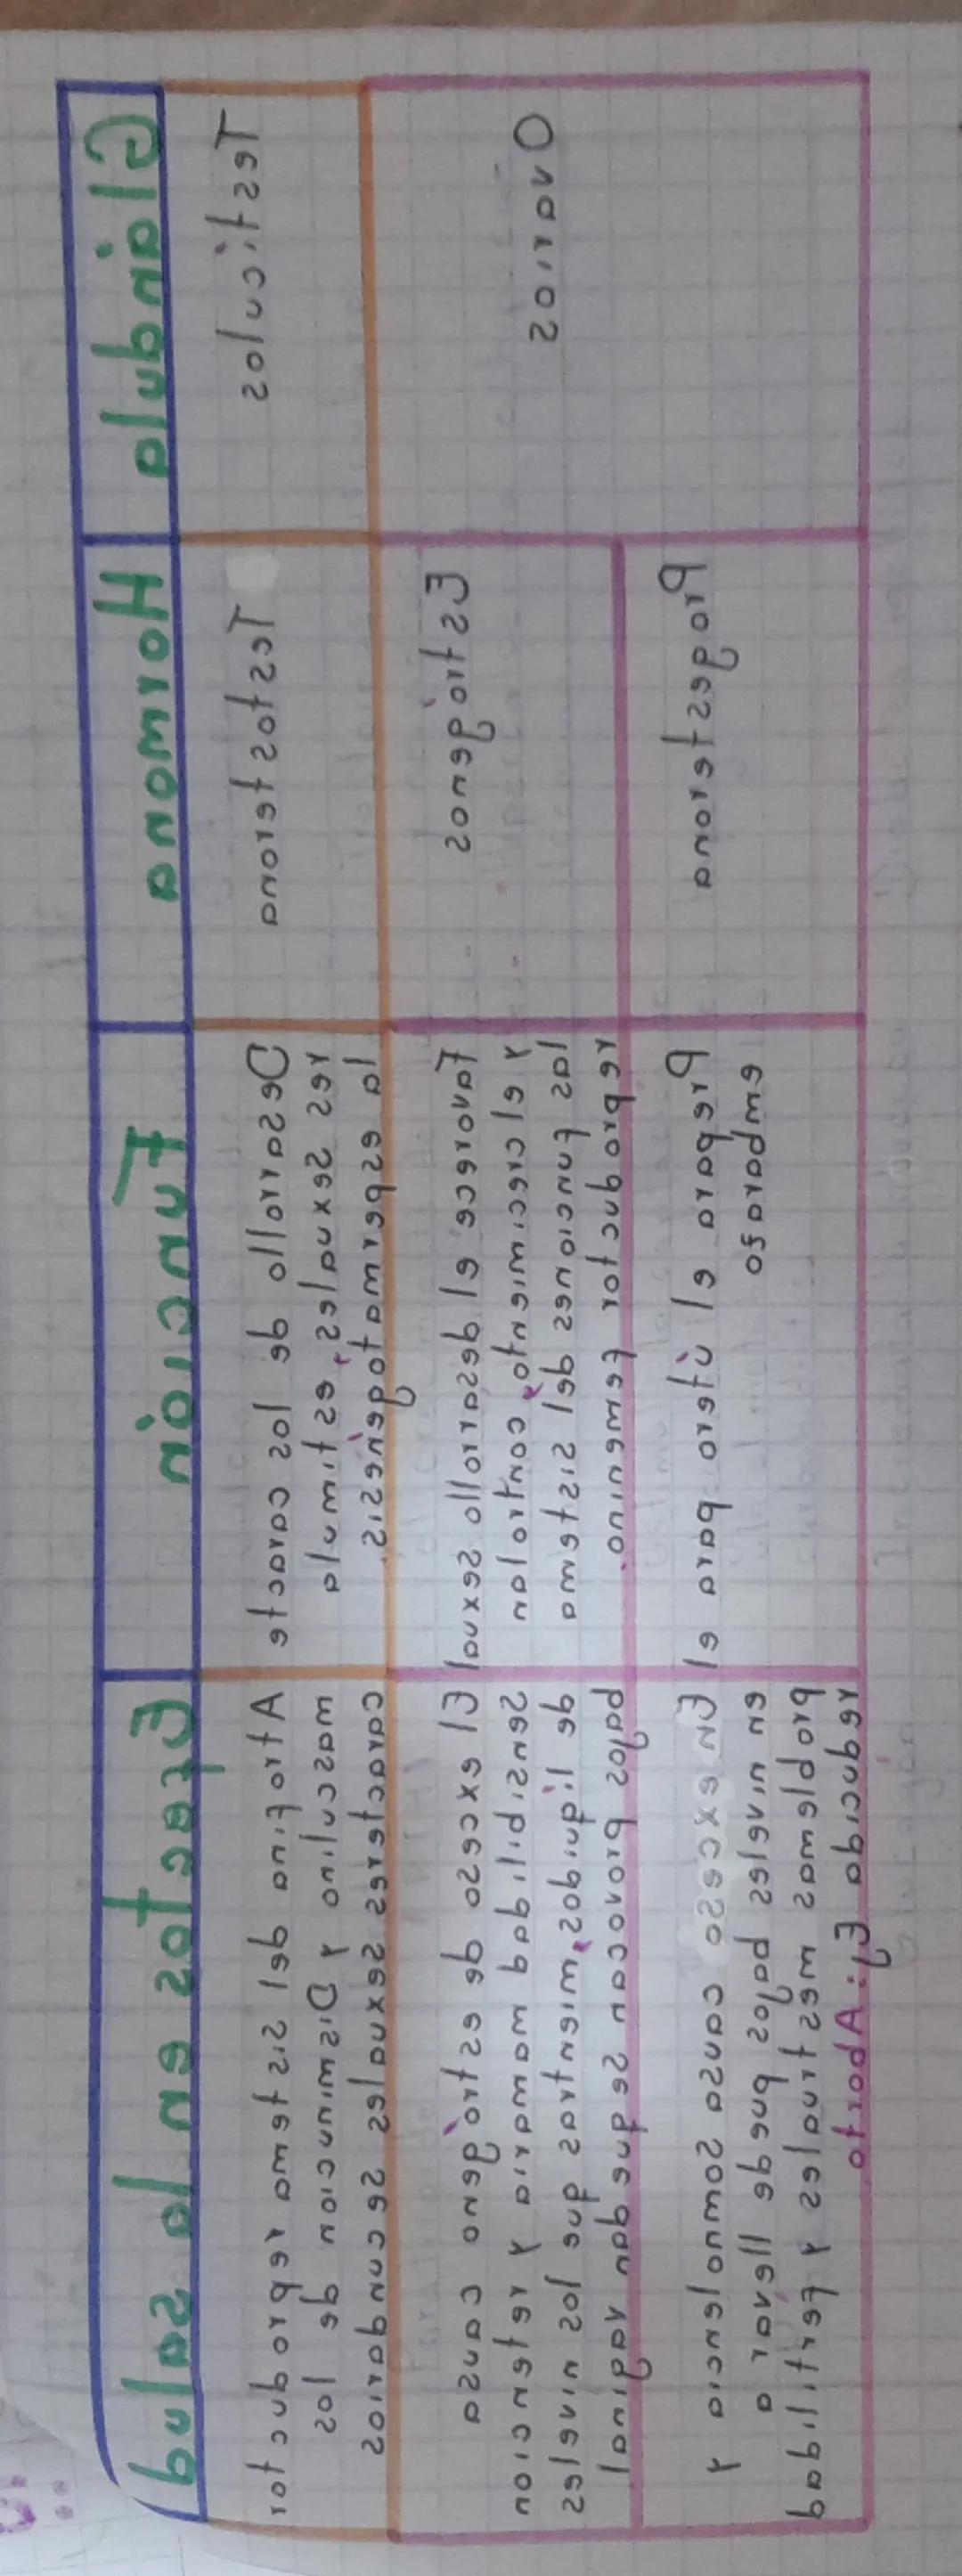 Glándula
Hormona
Función
Efectos en la salud
Testículos
Testosterona
Desarrollo de los caracte
res sexuales, estimula
la espermatogénesis.
Atrofina del sistema reproductor
masculino y Disminucion de los
caracteres sexuales secundarios
Ovarios
Estrógenos
Favorece el desarrollo sexual
y el crecimiento, controlan
las funciones del sistema
reproductor femenino.
El exceso de estrógeno causa
sensibilidad mamaria y retencion
de líquidos, mientras que los niveles
bajos provocan sequedad vaginal
progesterona
prepara el útero para el
embarazo
En exceso causa somnolencia y
en niveles bajos puede llevar a
problemas menstruales y fertilidad
reducida Ej: Aborto.